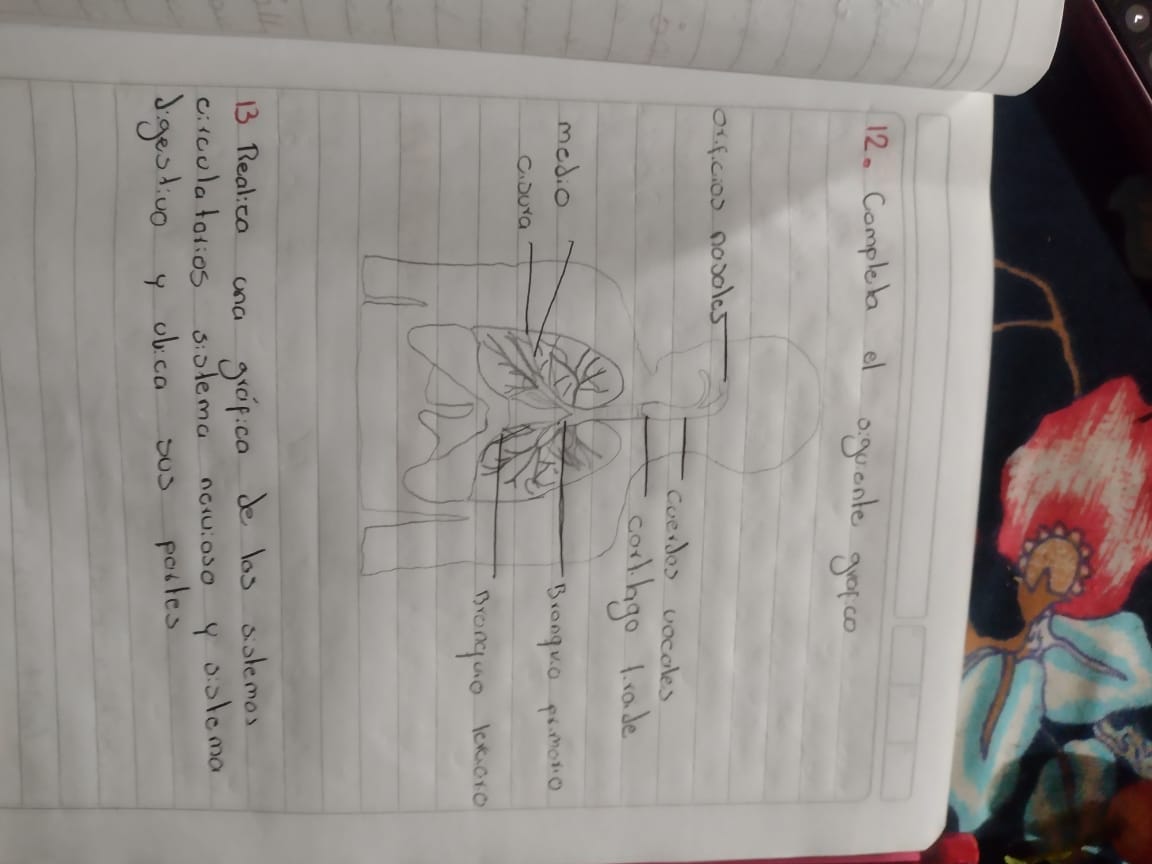 12. Completa el siguente grafico
orificios nasales
Cuerdas vocales
cart.lago tirade
medio
cisura
Bronquio primario
Bronquio terciario
13 Realica una gráfica de los sistemas
circulatorios sistema nervioso y sistema
digestivo y ubica sus partes